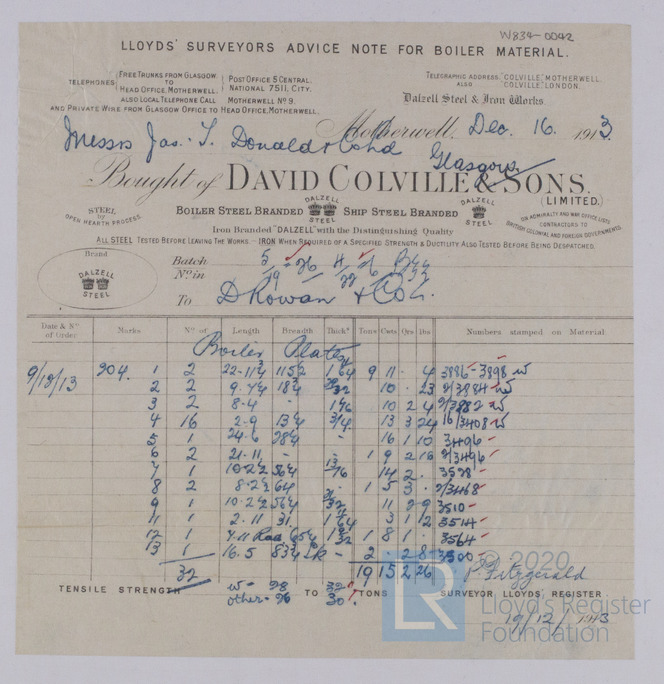 W834-0042
LLOYDS' SURVEYORS ADVICE NOTE FOR BOILER MATERIAL.
TELEPHONES
FREE TRUNKS FROM GLASGOW.
TO
HEAD OFFICE, MOTHERWELL.
POST OFFICE 5 CENTRAL.
NATIONAL 7511, CITY.
ALSO LOCAL TELEPHONE CALL MOTHERWELL Nº 9.
AND PRIVATE WIRE FROM GLASGOW OFFICE TO HEAD OFFICE, MOTHERWELL.
TELEGRAPHIC ADDRESS, "COLVILLE" MOTHERWELL.
ALSO "COLVILLE" LONDON.
Dalzell Steel & Iron Works
Motherwell, Dec. 16. 1913.
Messrs Jas. T. Donald & Co Ltd
Glasgow
Bought of DAVID COLVILLE & SONS.
(LIMITED.)
STEEL
BY
OPEN HEARTH PROCESS.
BOILER STEEL BRANDED
DALZELL
STEEL
SHIP STEEL BRANDED
DALZELL
STEEL
ON ADMIRALTY AND WAR OFFICE LISTS
CONTRACTORS TO
BRITISH COLONIAL AND FOREIGN GOVERNMENTS.
Iron Branded "DALZELL" with the Distinguishing Quality
ALL STEEL TESTED BEFORE LEAVING THE WORKS. - IRON WHEN REQUIRED OF A SPECIFIED STRENGTH & DUCTILITY ALSO TESTED BEFORE BEING DESPATCHED.
Brand
DALZELL
STEEL
Batch
Nº in
To D Rowan & Co L.
Date & Nº of Order Marks Nº of Length Breadth Thickˢ Tons Cwts Qrs lbs Numbers stamped on Material
Boiler Plates
9/12/13 204. 1 2 9 11 - 4 3886-3898 w
2 2 10 - 23 2/3884 w
3 2 8-4 10 2 4 2/3882 w
4 16 2-9 13½ 3/4 13 3 24 16/3408 w
5 1 24-6 28½ - 16 1 10 3496
6 2 21-11 - 1 9 2 2/3496
7 1 13/16 14 2 - 3528
8 2 64 1 5 3 - 2/3468
9 1 11 2 9 3510
11 1 2-11 31. 3 1 12 3514
12 1 1 8 1 - 3564
13 1 16.5 2 - 2 8 3500
32 19 15 2 26
P. Fitzgerald
TENSILE STRENGTH w - 28 TO 32 TONS SURVEYOR LLOYDS' REGISTER
other - 26 30
19/12/1913
© 2020
LR
Lloyd's Register
Foundation